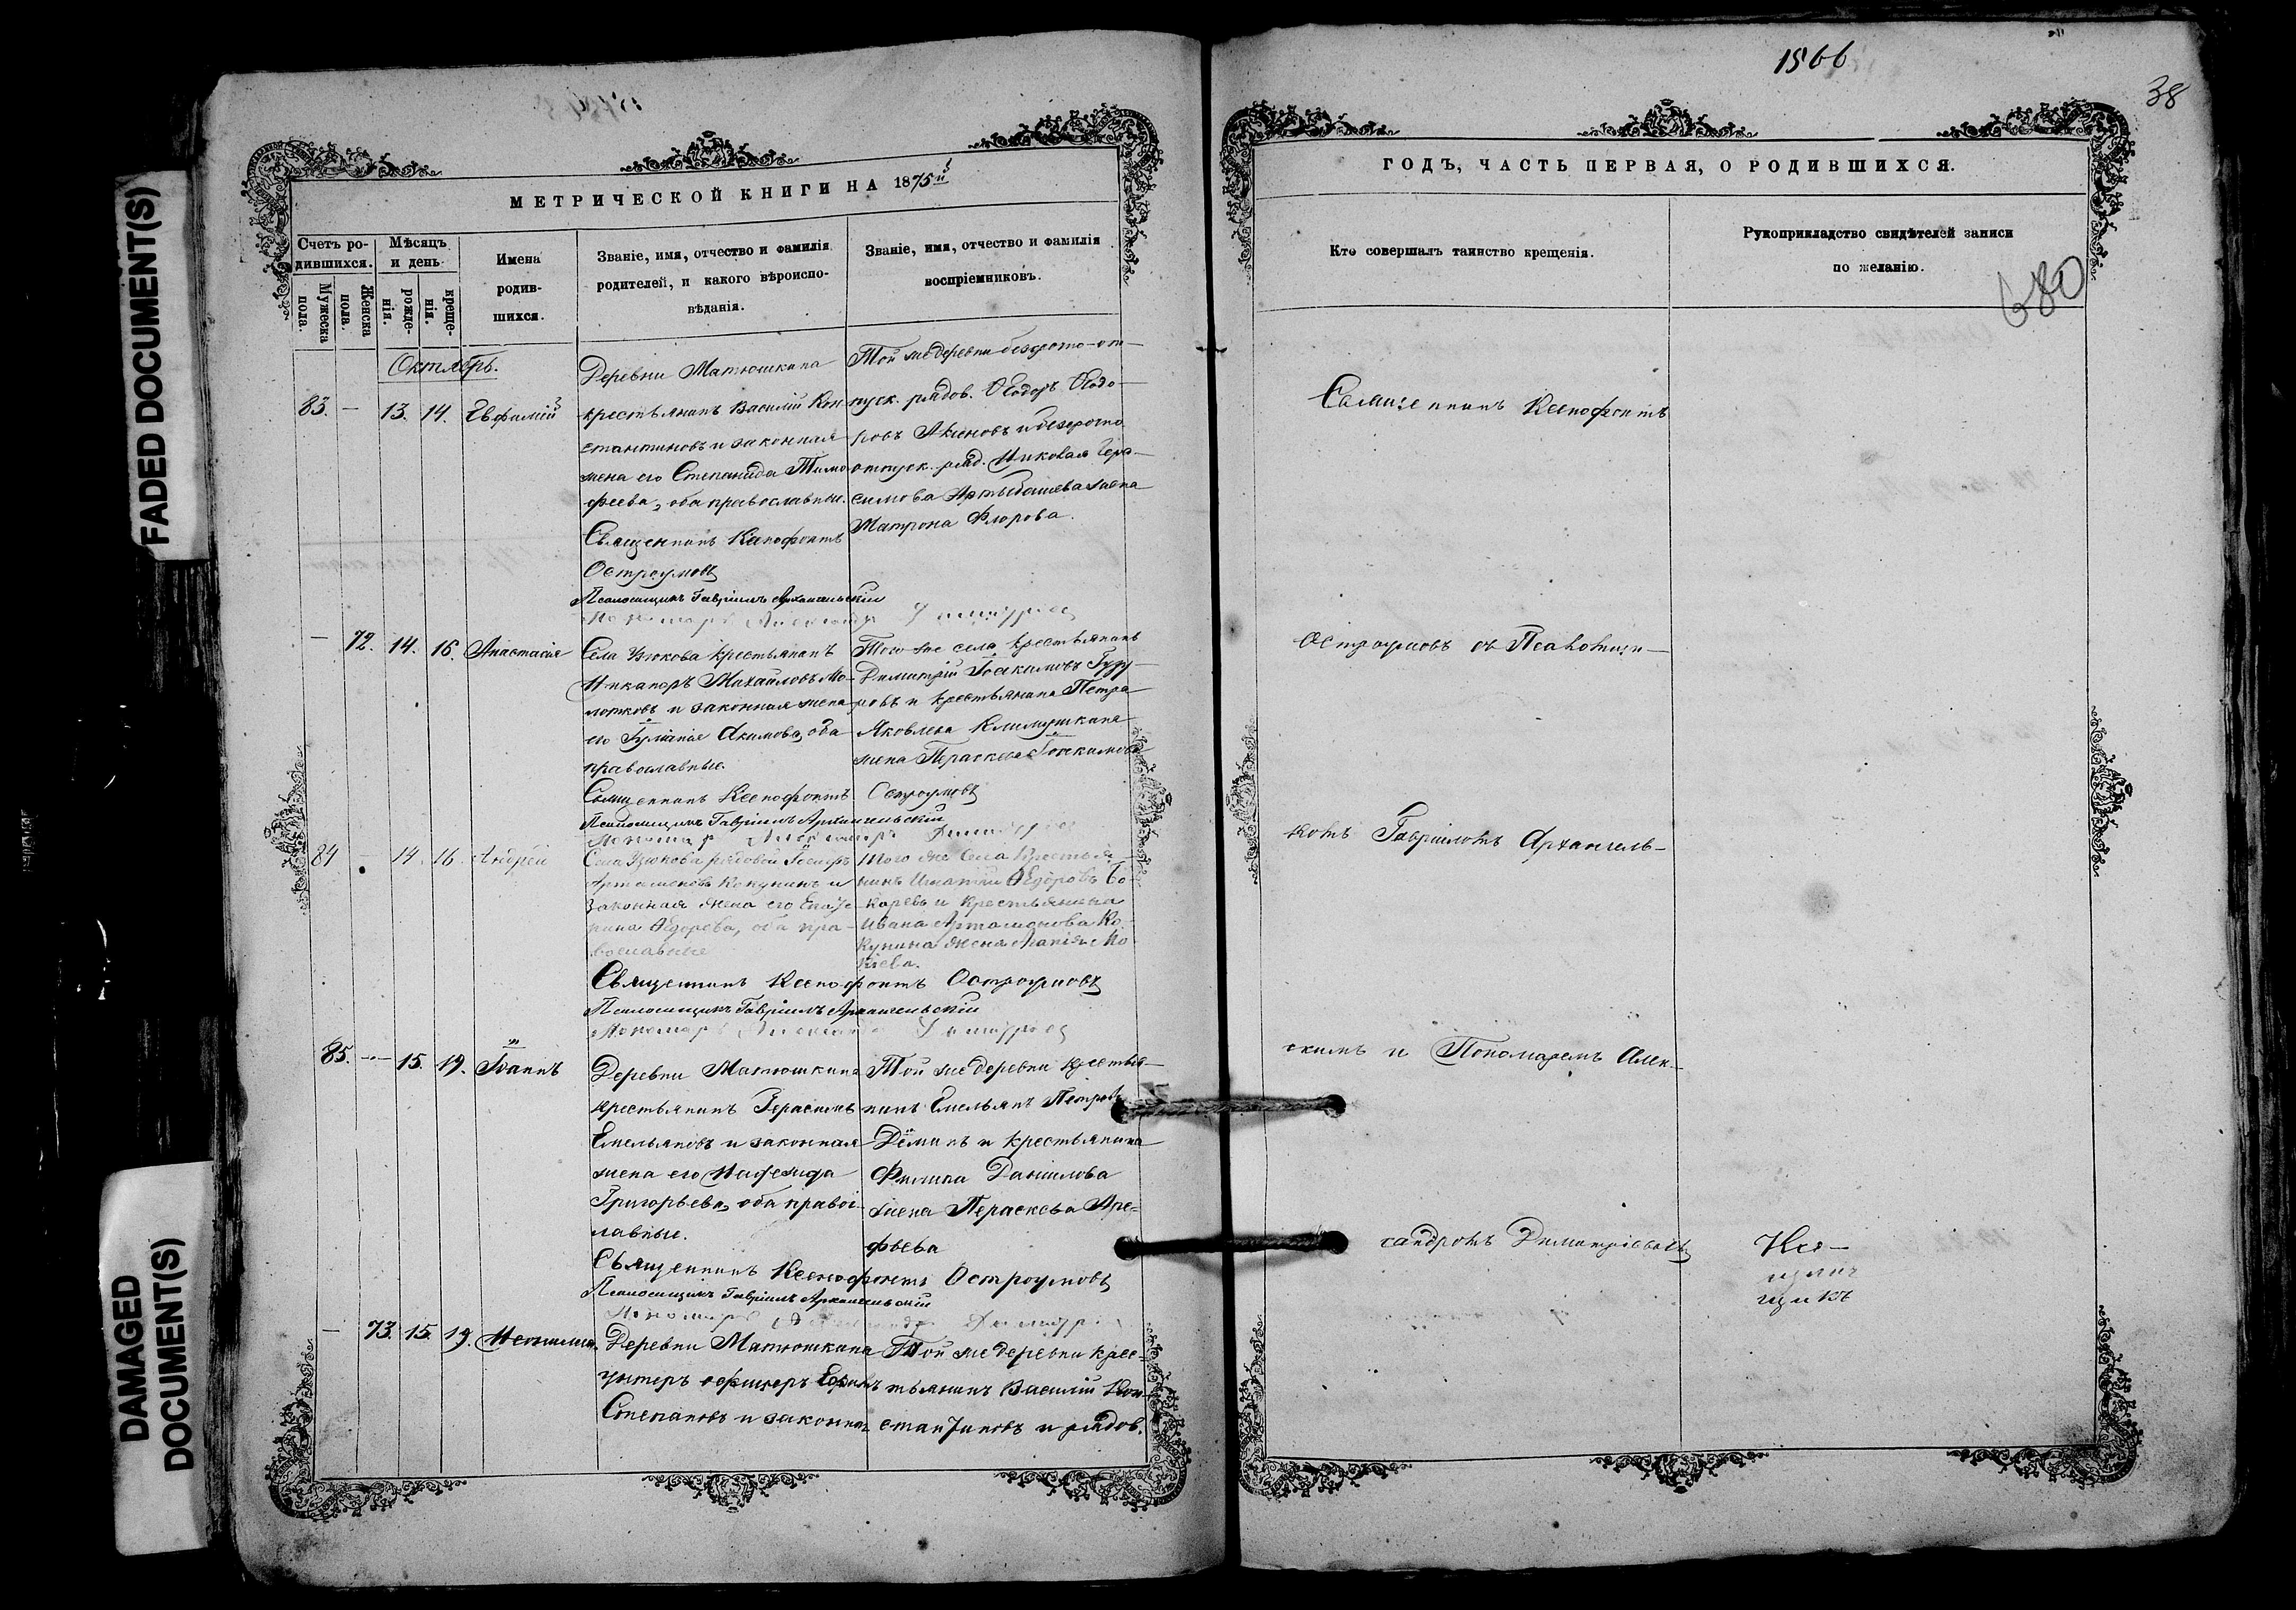 FADED DOCUMENT(S)
DAMAGED
DOCUMENT(S)
МЕТРИЧЕСКОЙ КНИГИ НА 1875й
Счетъ ро-
дившихся.
Мужеска
пола.
Женска
пола.
Мѣсяцъ
и день
рожде-
нія.
креще-
нія.
Имена
родив-
шихся.
Званіе, имя, отчество и фамилія
родителей, и какого вѣроиспо-
вѣданія.
Званіе, имя, отчество и фамилія
воспріемниковъ.
Октябрь.
83. — 13. 14. Евфимій
Деревни Матюшкина
крестьянинъ Василій Кон-
стантиновъ и законная
жена его Степанида Тимо-
феева, оба православные.
Священникъ Ксенофонтъ
Остроумовъ
Псаломщикъ Гавріилъ Архангельскій
Той же деревни безсрочно-от-
пуск. рядов. Ѳеодоръ Ѳеодо-
ровъ Аксеновъ и безсрочно
отпуск. ряд. Николая Гера-
симова Артыбашева жена
Матрона Флорова.
— 72. 14. 16. Анастасія
Села Узюкова крестьянинъ
Никаноръ Михайловъ Мо-
лотковъ и законная жена
его Іуліанія Акимова, оба
православные.
Священникъ Ксенофонтъ Остроумовъ
Псаломщикъ Гавріилъ Архангельскій
Того же села крестьянинъ
Димитрій Іоакимовъ Гуру-
ровъ и крестьянина Петра
Яковлева Климушкина
жена Параскева Іоакимова
84 — 14. 16. Андрей
Села Узюкова рядовой
Артамоновъ Кокунинъ и
законная жена его Екате-
рина Ѳедорова, оба пра-
вославные
Священникъ Ксенофонтъ Остроумовъ
Псаломщикъ Гавріилъ Архангельскій
Того же села крестья-
нинъ Игнатій Ѳедоровъ Бо-
каревъ и крестьянина
Ивана Артамонова Ко-
кунина жена Мо-
кіева.
85. — 15. 19. Іоаннъ
Деревни Матюшкина
крестьянинъ Герасимъ
Емельяновъ и законная
жена его
Григорьева, оба правос-
лавные.
Священникъ Ксенофонтъ Остроумовъ
Псаломщикъ Гавріилъ Архангельскій
Той же деревни крестья-
нинъ Емельянъ Петровъ
Дёминъ и крестьянина
Филипа Даніилова
жена Параскева Аре-
фьева
— 73. 15. 19. Неонилла.
Деревни Матюшкина
унтеръ офицеръ
Степановъ и законная
Той же деревни крес-
тьянинъ Василій Кон-
стантиновъ и рядов.
1866
38
ГОДЪ, ЧАСТЬ ПЕРВАЯ, О РОДИВШИХСЯ.
Кто совершалъ таинство крещенія.
Рукоприкладство свидѣтелей записи
по желанію.
680
Священникъ Ксенофонтъ
Остроумовъ съ Псаломщи-
комъ Гавріиломъ Архангель-
скимъ и Пономаремъ Алек-
сандромъ Димитріевымъ